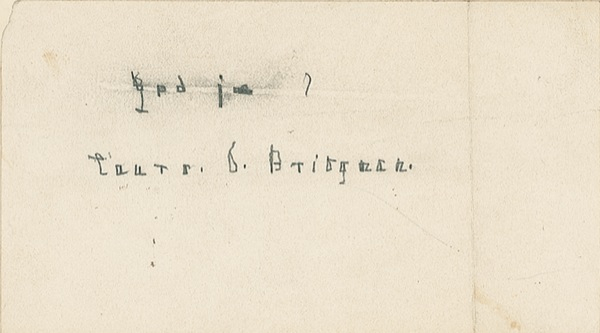 God
Laura. D. Bridgman.